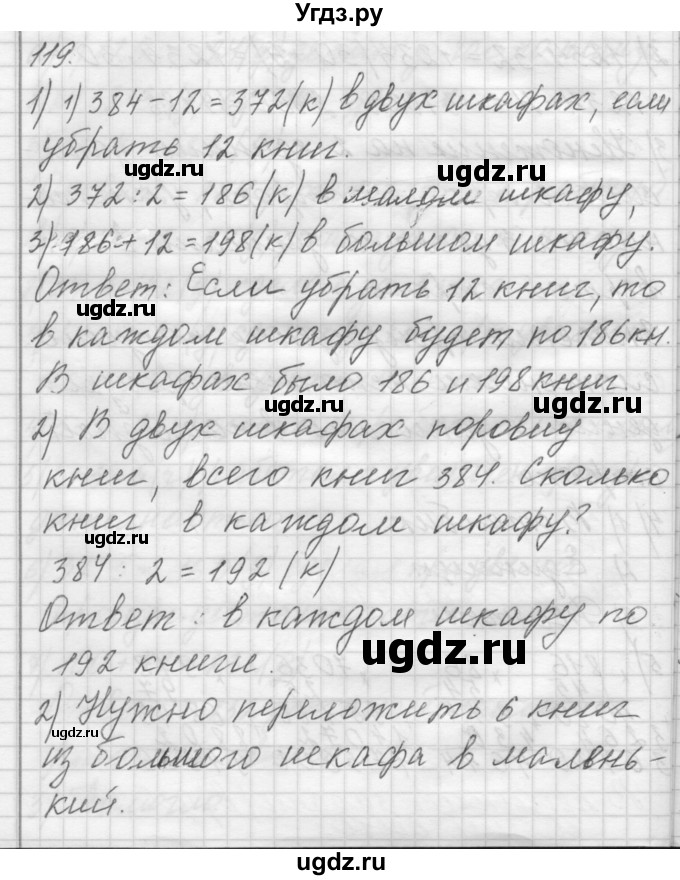 Угдз.ру
119.
1) 1) 384 - 12 = 372 (к) в двух шкафах, если
убрать 12 книг.
ugdz.ru ugdz.ru
2) 372 : 2 = 186 (к) в малом шкафу,
3) 186 + 12 = 198 (к) в большом шкафу.
Ответ: Если убрать 12 книг, то
ugdz.ru
в каждом шкафу будет по 186 кн.
В шкафах было 186 и 198 книг.
ugdz.ru ugdz.ru
2) В двух шкафах поровну
книг, всего книг 384. Сколько
книг в каждом шкафу?
ugdz.ru
384 : 2 = 192 (к)
Ответ: в каждом шкафу по
ugdz.ru
192 книги.
2) Нужно переложить 6 книг
ugdz.ru
из большого шкафа в малень-
кий.
ugdz.ru